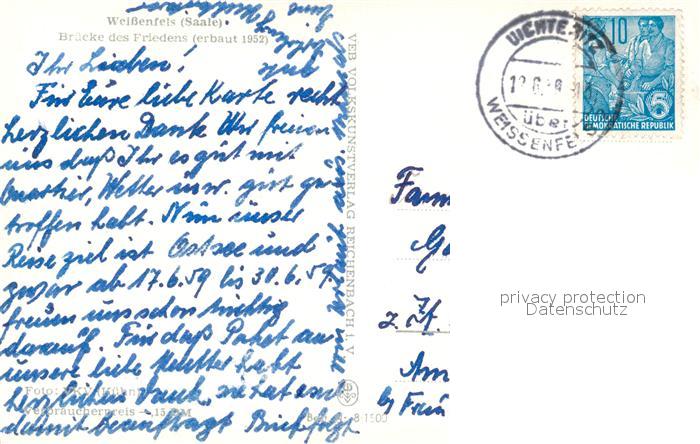 Weißenfels (Saale)
Brücke des Friedens (erbaut 1952)
Ihr Lieben!
Für Eure liebe Karte recht
herzlichen Dank. Wir freuen
uns daß Ihr es gut mit
Quartier, Wetter usw. gut ge-
troffen habt. Nun unser
Reiseziel ist Ostsee und
zwar ab 17.6.59 bis 30.6.59
freuen uns schon tüchtig
darauf. Für daß Paket an
unsere liebe Mutter habt
herzlichen Dank, sie hat uns
damit beauftragt Brief folgt
Foto:
Verbraucherpreus -,15 DM
VEB VOLKSKUNSTVERLAG REICHENBACH i. V.
UICHTERITZ
über
WEISSENFELS
10
DEUTSCHE
DEMOKRATISCHE REPUBLIK
Fam
z. Zt.
Am
privacy protection
Datenschutz